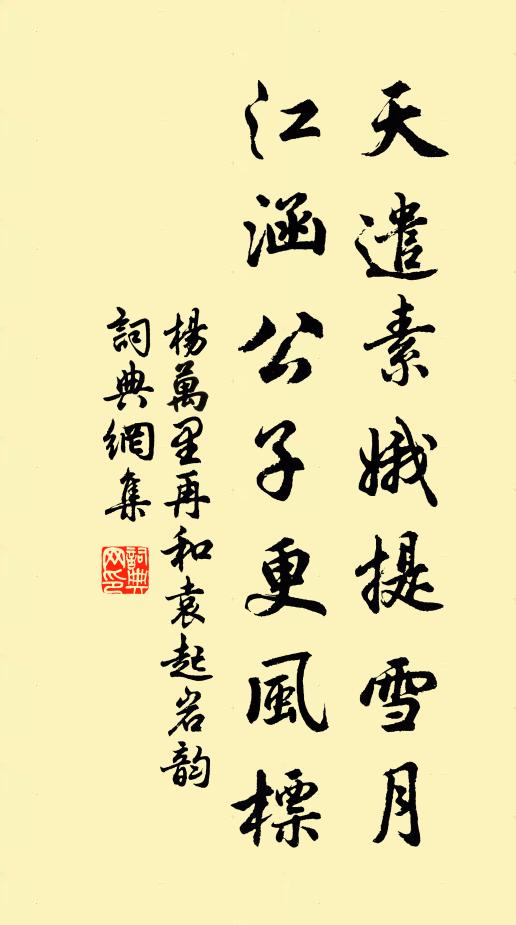 天遣素娥提雪月
江涵公子更風標
楊萬里再和袁起岩韵
詞典網集
詞典网印